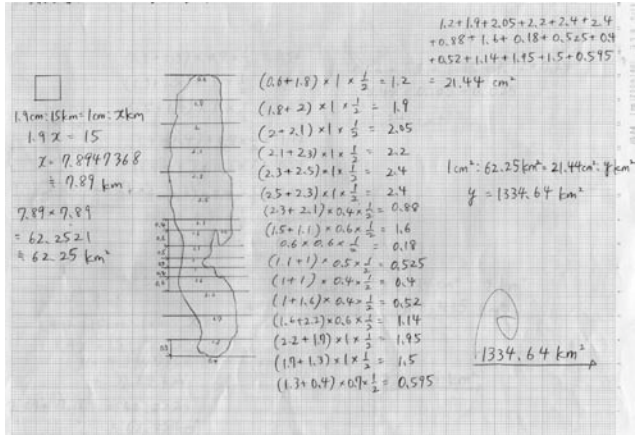 1.9cm:15km=1cm:xkm
1.9x = 15
x = 7.8947368
≒ 7.89 km
7.89 × 7.89
= 62.2521
≒ 62.25 km²
(0.6+1.8) × 1 × 1/2 = 1.2
(1.8+2) × 1 × 1/2 = 1.9
(2+2.1) × 1 × 1/2 = 2.05
(2.1+2.3) × 1 × 1/2 = 2.2
(2.3+2.5) × 1 × 1/2 = 2.4
(2.5+2.3) × 1 × 1/2 = 2.4
(2.3+2.1) × 0.4 × 1/2 = 0.88
(1.5+1.1) × 0.6 × 1/2 = 1.6
0.6 × 0.6 × 1/2 = 0.18
(1.1+1) × 0.5 × 1/2 = 0.525
(1+1) × 0.4 × 1/2 = 0.4
(1+1.6) × 0.4 × 1/2 = 0.52
(1.6+2.2) × 0.6 × 1/2 = 1.14
(2.2+1.7) × 1 × 1/2 = 1.95
(1.7+1.3) × 1 × 1/2 = 1.5
(1.3+0.4) × 0.7 × 1/2 = 0.595
1.2+1.9+2.05+2.2+2.4+2.4
+0.88+1.6+0.18+0.525+0.4
+0.52+1.14+1.95+1.5+0.595
= 21.44 cm²
1cm²:62.25km²=21.44cm²:ykm²
y = 1334.64 km²
1334.64 km²